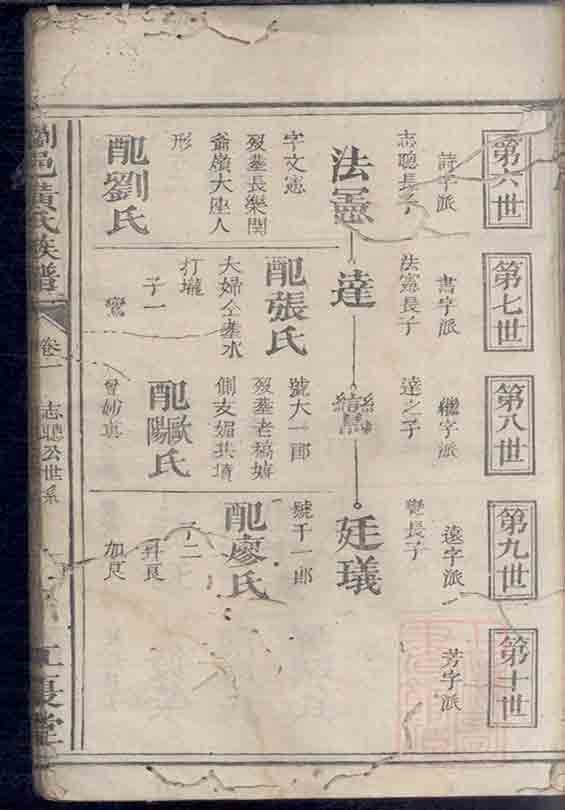 第六世
詩字派
志聰長子
法憲
字文憲
歿墓長樂関
爺嶺大座人
形
配劉氏
第七世
書字派
法憲長子
達
配張氏
夫婦仝塟水
打壠
子一
鸞
第八世
繼字派
達之子
鸞
號大一郎
歿墓老稿
側支媚共墳
配歐陽氏
曾妙真
第九世
遠字派
鸞長子
廷璊
號千一郎
配廖氏
子二
昇良
加良
第十世
芳字派
瀏邑黃氏族譜
卷一
志聰公世系
江夏堂